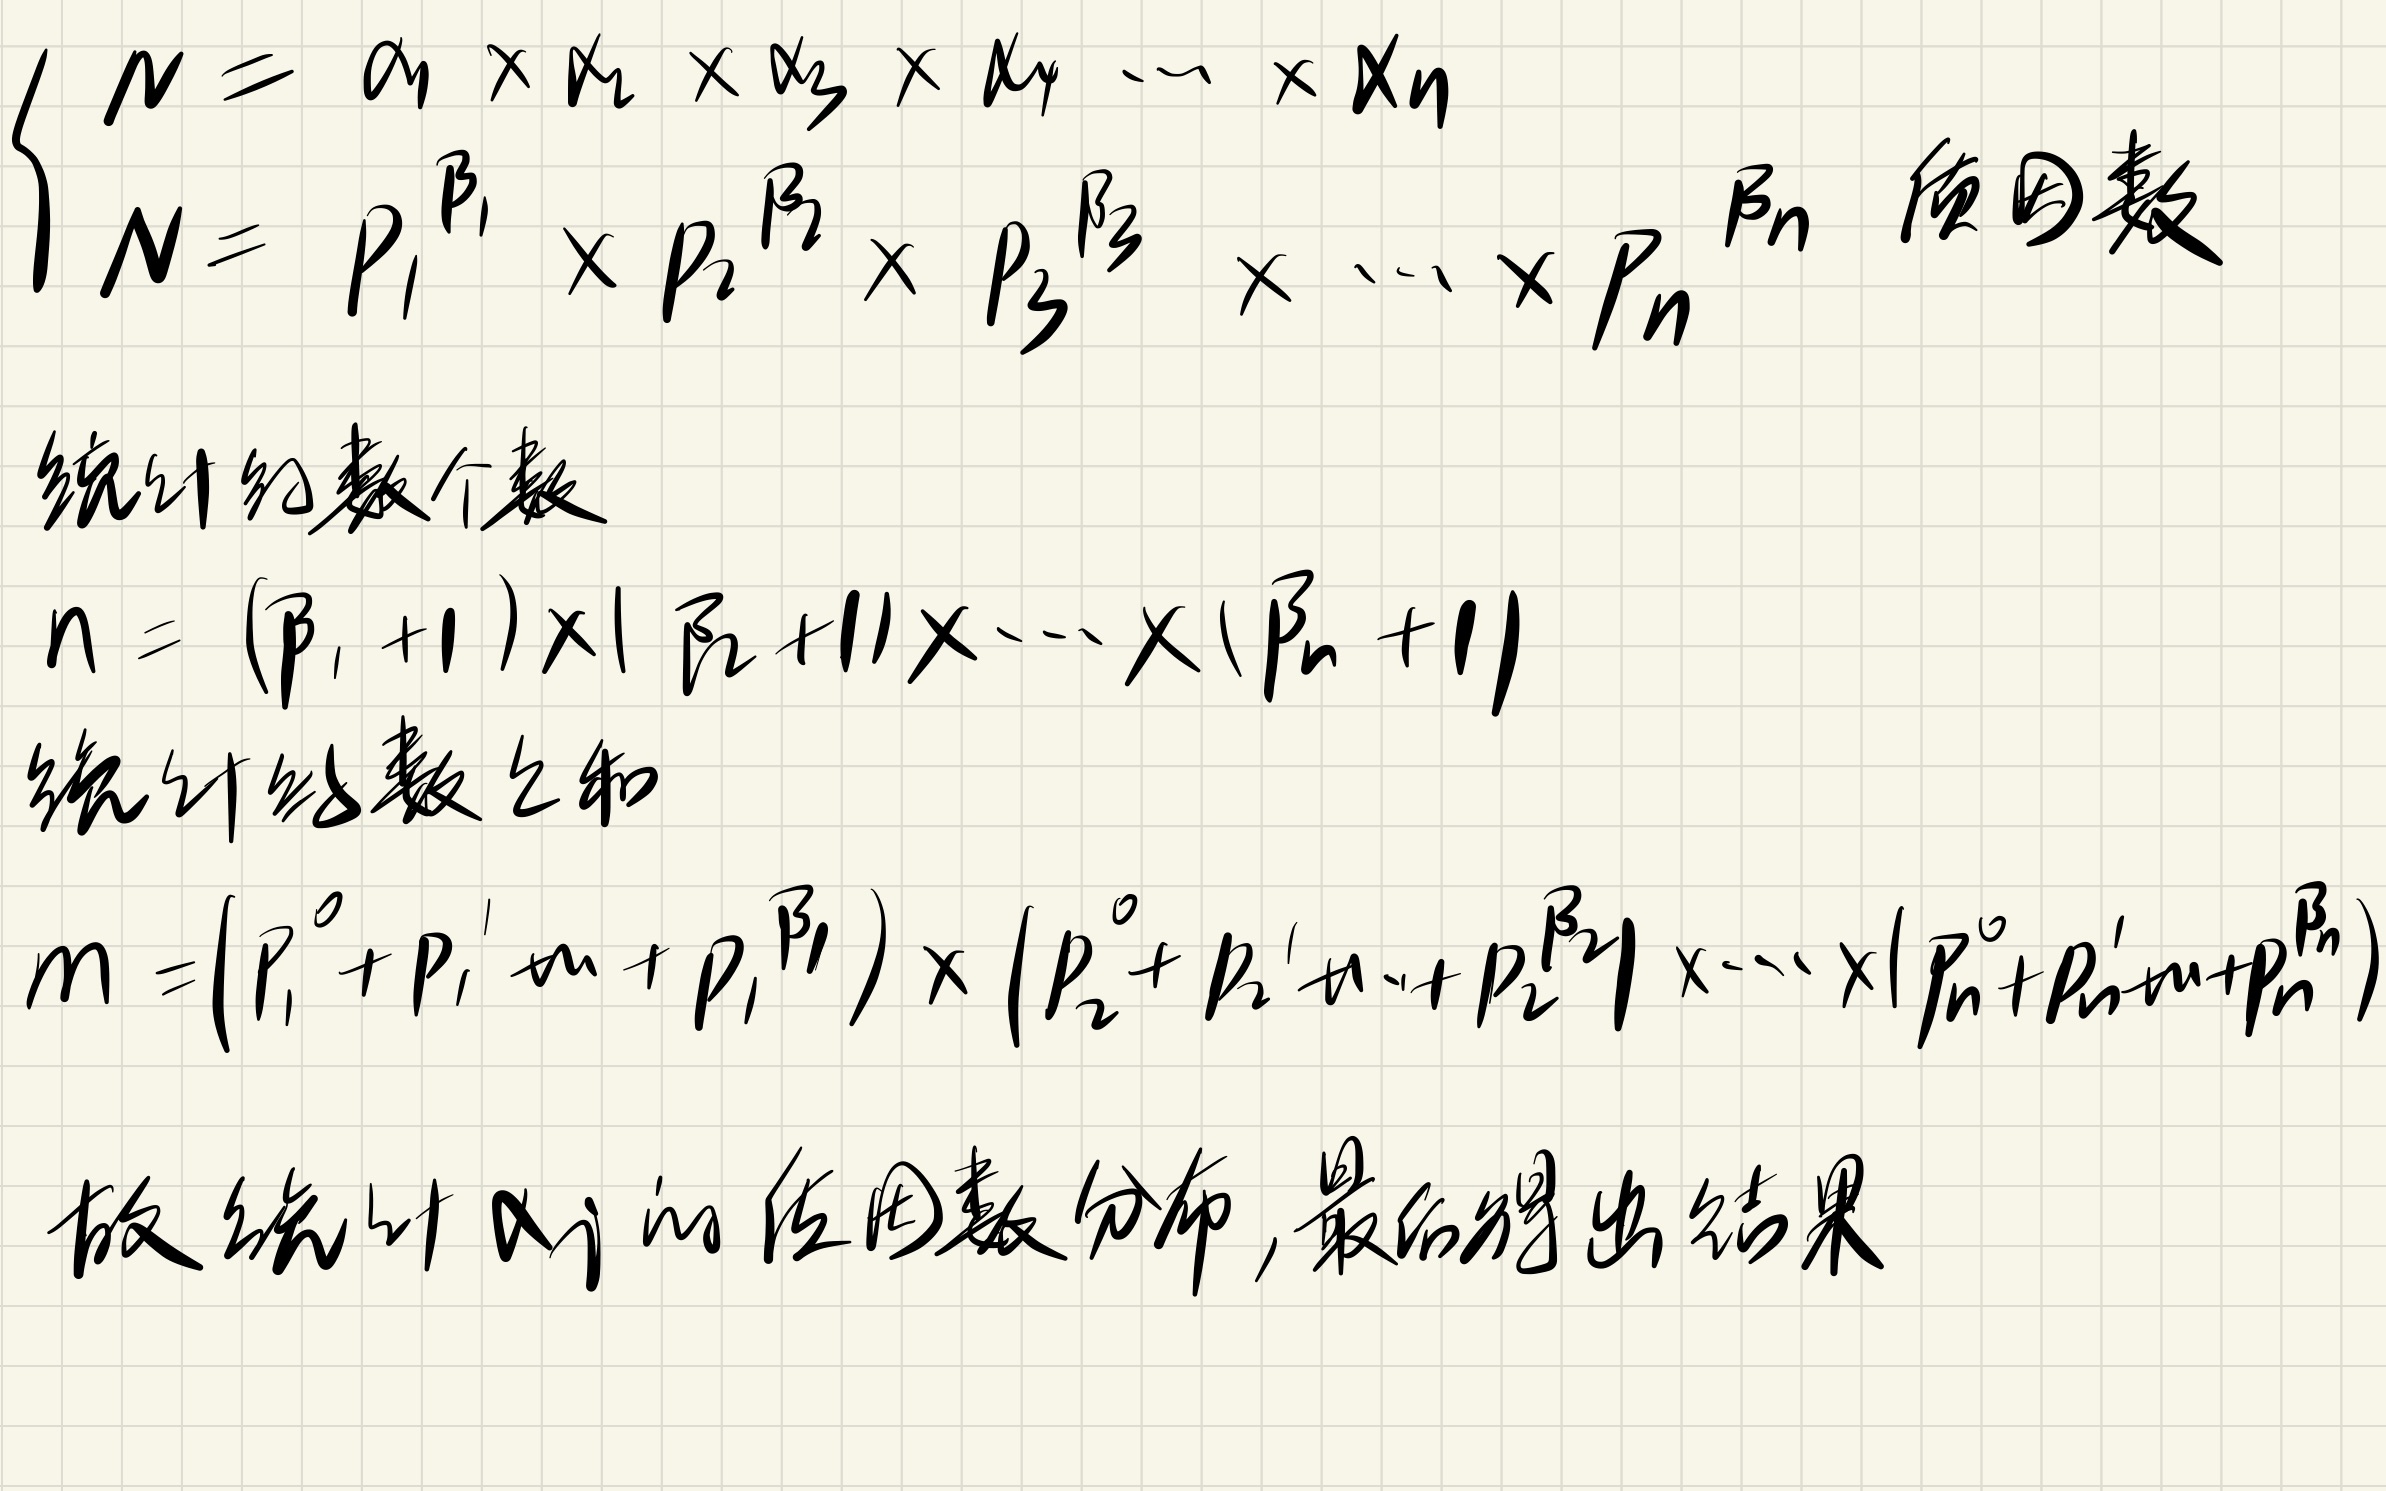 N = α₁ × α₂ × α₃ × α₄ ··· × αₙ
N = P₁^β₁ × P₂^β₂ × P₃^β₃ × ··· × Pₙ^βₙ 质因数
统计约数个数
n = (β₁ + 1) × (β₂ + 1) × ··· × (βₙ + 1)
统计约数之和
m = (P₁⁰ + P₁¹ + ··· + P₁^β₁) × (P₂⁰ + P₂¹ + ··· + P₂^β₂) × ··· × (Pₙ⁰ + Pₙ¹ + ··· + Pₙ^βₙ)
故统计αⱼ的质因数分布,最后得出结果